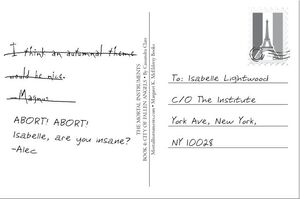 I think an autumnal theme
would be nice.
-Magnus
ABORT! ABORT!
Isabelle, are you insane?
-Alec
THE MORTAL INSTRUMENTS
BOOK 4: CITY OF FALLEN ANGELS • By Cassandra Clare
MortalInstruments.com • Margaret K. McElderry Books
To: Isabelle Lightwood
C/O The Institute
York Ave, New York,
NY 10028